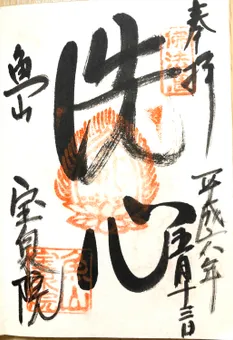 奉拝
平成二八年
五月十三日
洗心
魚山
宝泉院